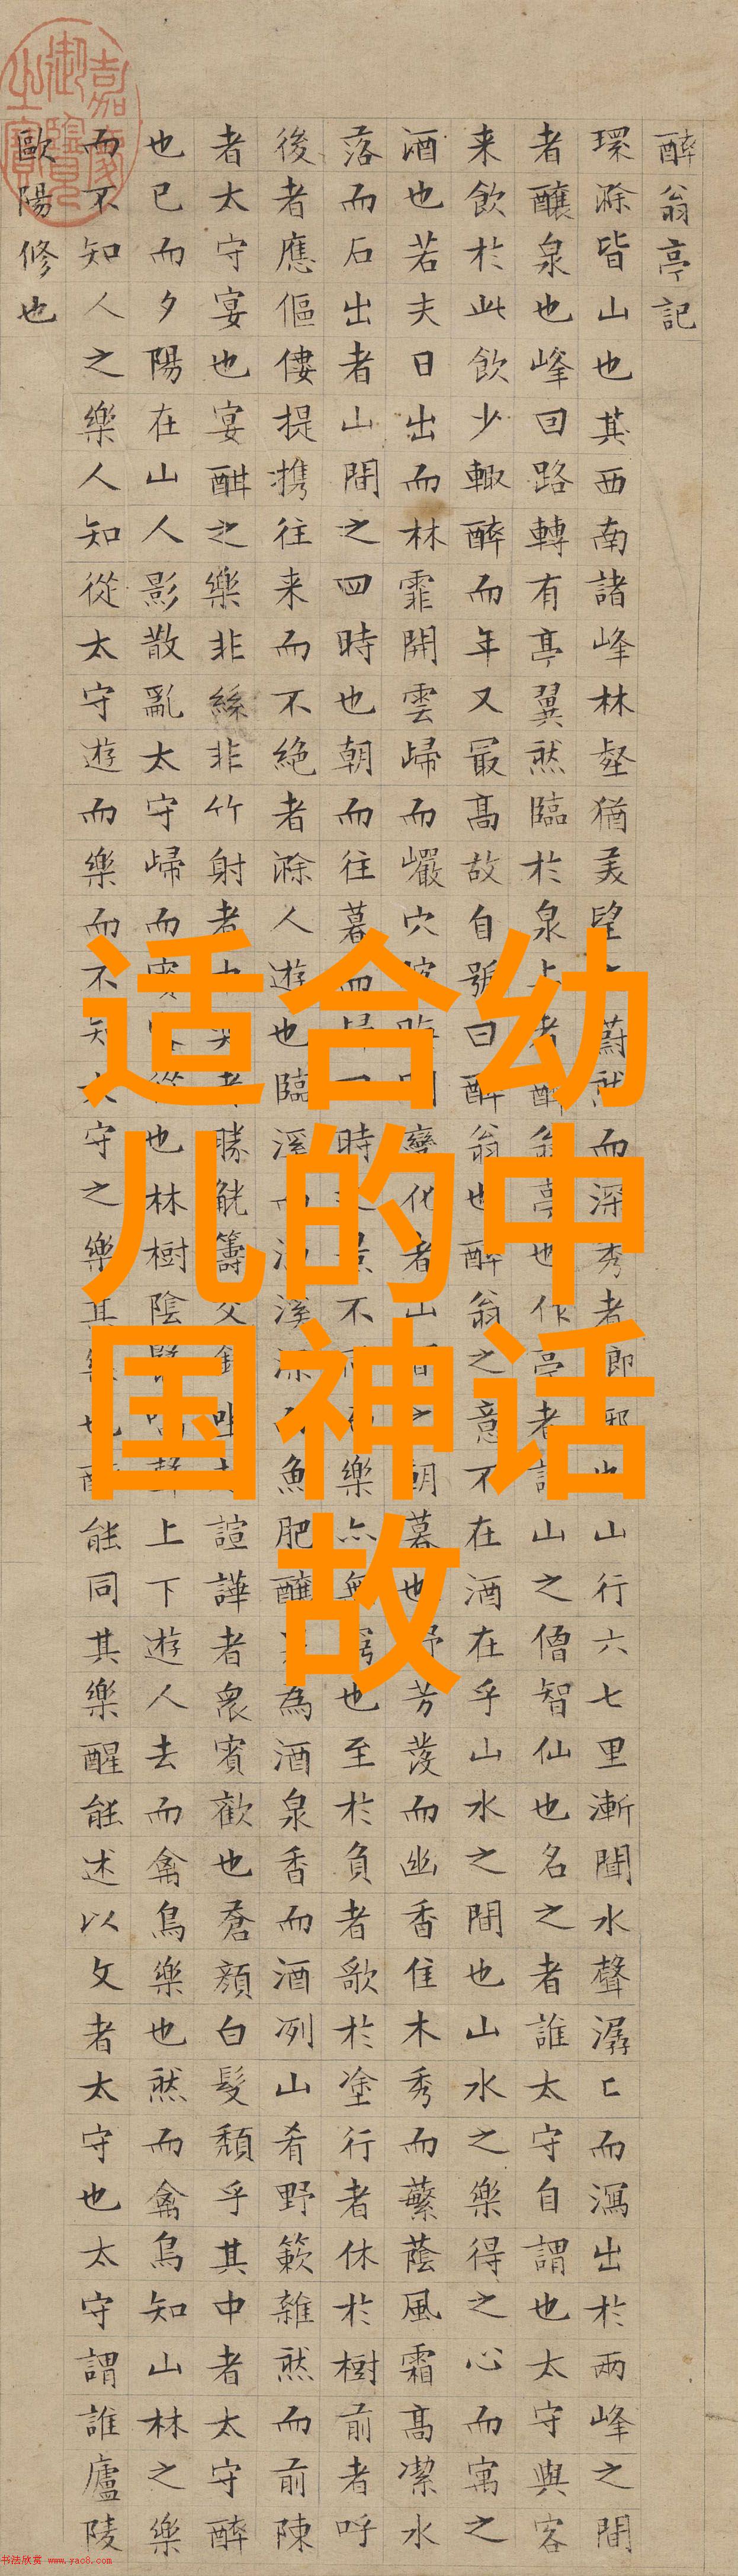 醉翁亭記
環滁皆山也其西南諸峰林壑猶美望蔚然而深秀者郎也山行六七里漸聞水聲潺〻而瀉出於兩峰之間
者釀泉也峰回路轉有亭翼然臨於泉上者醉翁亭也作亭者誰山之僧智仙也名之者誰太守自謂也太守與客
来飲於此飲少輒醉而年又最高故自號曰醉翁也醉翁之意不在酒在乎山水之間也山水之樂得之心而寓之
酒也若夫日出而林霏開雲歸而巖穴晦明變化者山之朝暮也野芳發而幽香佳木秀而蘩蔭風霜高潔水
落而石出者山間之四時也朝而往暮而歸時景不樂亦無窮也至於負者歌於塗行者休於樹前者呼
後者應傴僂提携往来而不絶者滁人遊也臨溪而溪深魚肥釀為酒泉香而酒冽山肴野蔌雜然而前陳
者太守宴也宴酣之樂非絲非竹射者中者勝觥籌交諠譁者衆賓歡也蒼顏白髮頹乎其中者太守醉
也已而夕陽在山人影散亂太守歸而賓從也林樹陰聲上下遊人去而禽鳥樂也然而禽鳥知山林之樂
而不知人之樂人知從太守遊而樂而不知太守之樂其樂也醉能同其樂醒能述以文者太守也太守謂誰廬陵
歐陽修也
嘉慶御覽之寶
适合幼
儿的中
国神话
故
书法欣赏 www.yac8.com